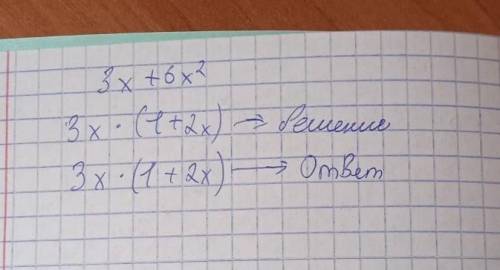 3x + 6x²
3x · (1+2x) → Решение
3x · (1+2x) → Ответ